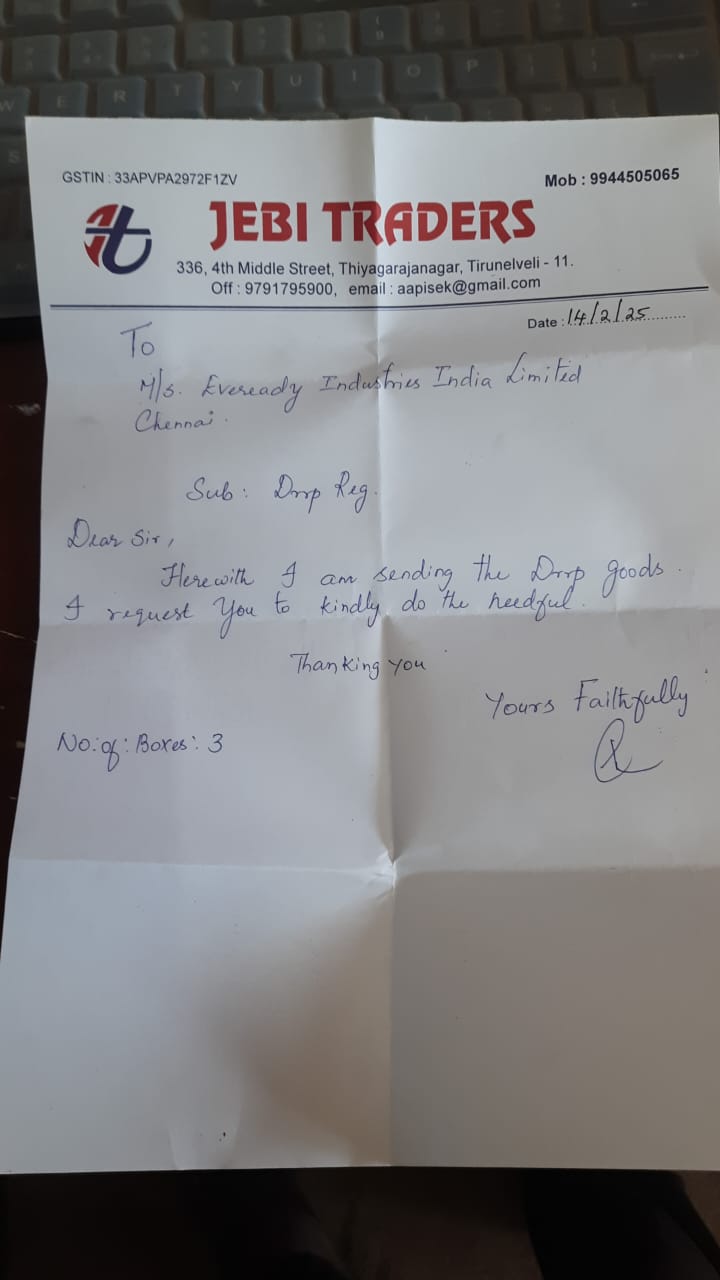 GSTIN : 33APVPA2972F1ZV
Mob : 9944505065
JEBI TRADERS
336, 4th Middle Street, Thiyagarajanagar, Tirunelveli - 11.
Off : 9791795900, email : aapisek@gmail.com
Date : 14/2/25
To
M/s. Eveready Industries India Limited
Chennai.
Sub: Drrp Reg.
Dear Sir,
Herewith I am sending the Drrp goods.
I request You to kindly do the needful.
Thanking you
Yours Faithfully
No: of: Boxes: 3